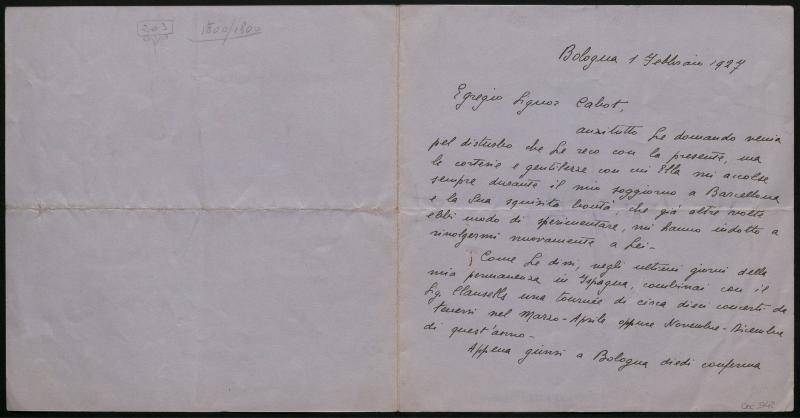 203
1800/1800
Bologna 1 Febbraio 1927
Egregio Signor Cabot,
anzitutto Le domando venia
pel disturbo che Le reco con la presente, ma
le cortesie e gentilezze con cui Ella mi accolse
sempre durante il mio soggiorno a Barcellona
e la Sua squisita bontà, che già altre volte
ebbi modo di sperimentare, mi hanno indotto a
rivolgermi nuovamente a Lei -
Come Le dissi, negli ultimi giorni della
mia permanenza in Ispagna, combinai con il
Sig. Clausells una tournée di circa dieci concerti da
tenersi nel Marzo-Aprile oppure Novembre-Dicembre
di quest'anno -
Appena giunsi a Bologna diedi conferma